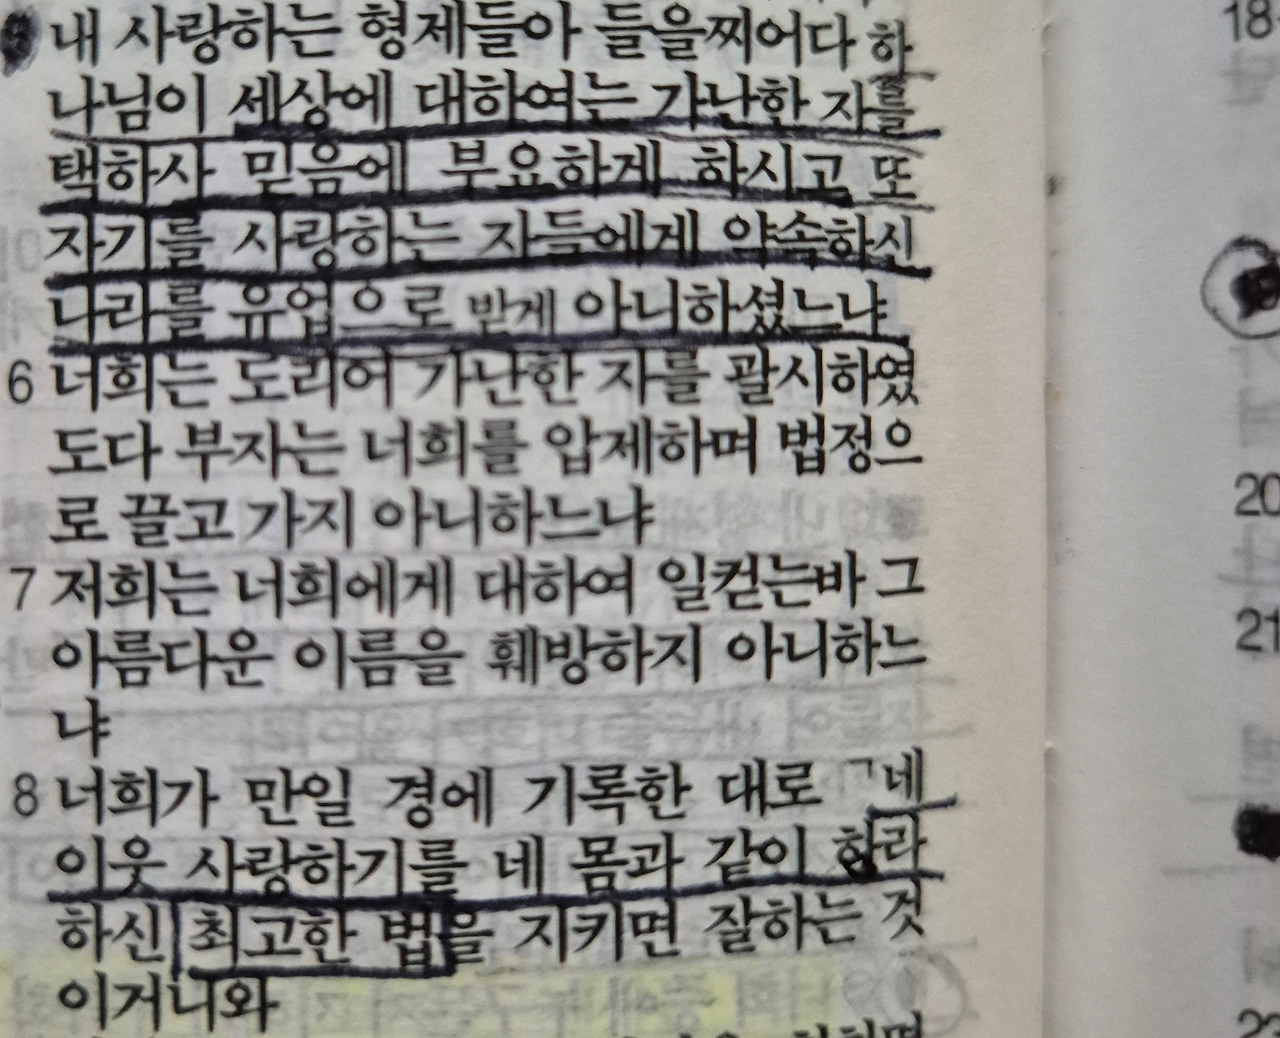 내 사랑하는 형제들아 들을찌어다 하
나님이 세상에 대하여는 가난한 자를
택하사 믿음에 부요하게 하시고 또
자기를 사랑하는 자들에게 약속하신
나라를 유업으로 받게 아니하셨느냐
6 너희는 도리어 가난한 자를 괄시하였
도다 부자는 너희를 압제하며 법정으
로 끌고 가지 아니하느냐
7 저희는 너희에게 대하여 일컫는바 그
아름다운 이름을 훼방하지 아니하느
냐
8 너희가 만일 경에 기록한 대로 ㄱ네
이웃 사랑하기를 네 몸과 같이 하라
하신 최고한 법을 지키면 잘하는 것
이거니와
18
20
21